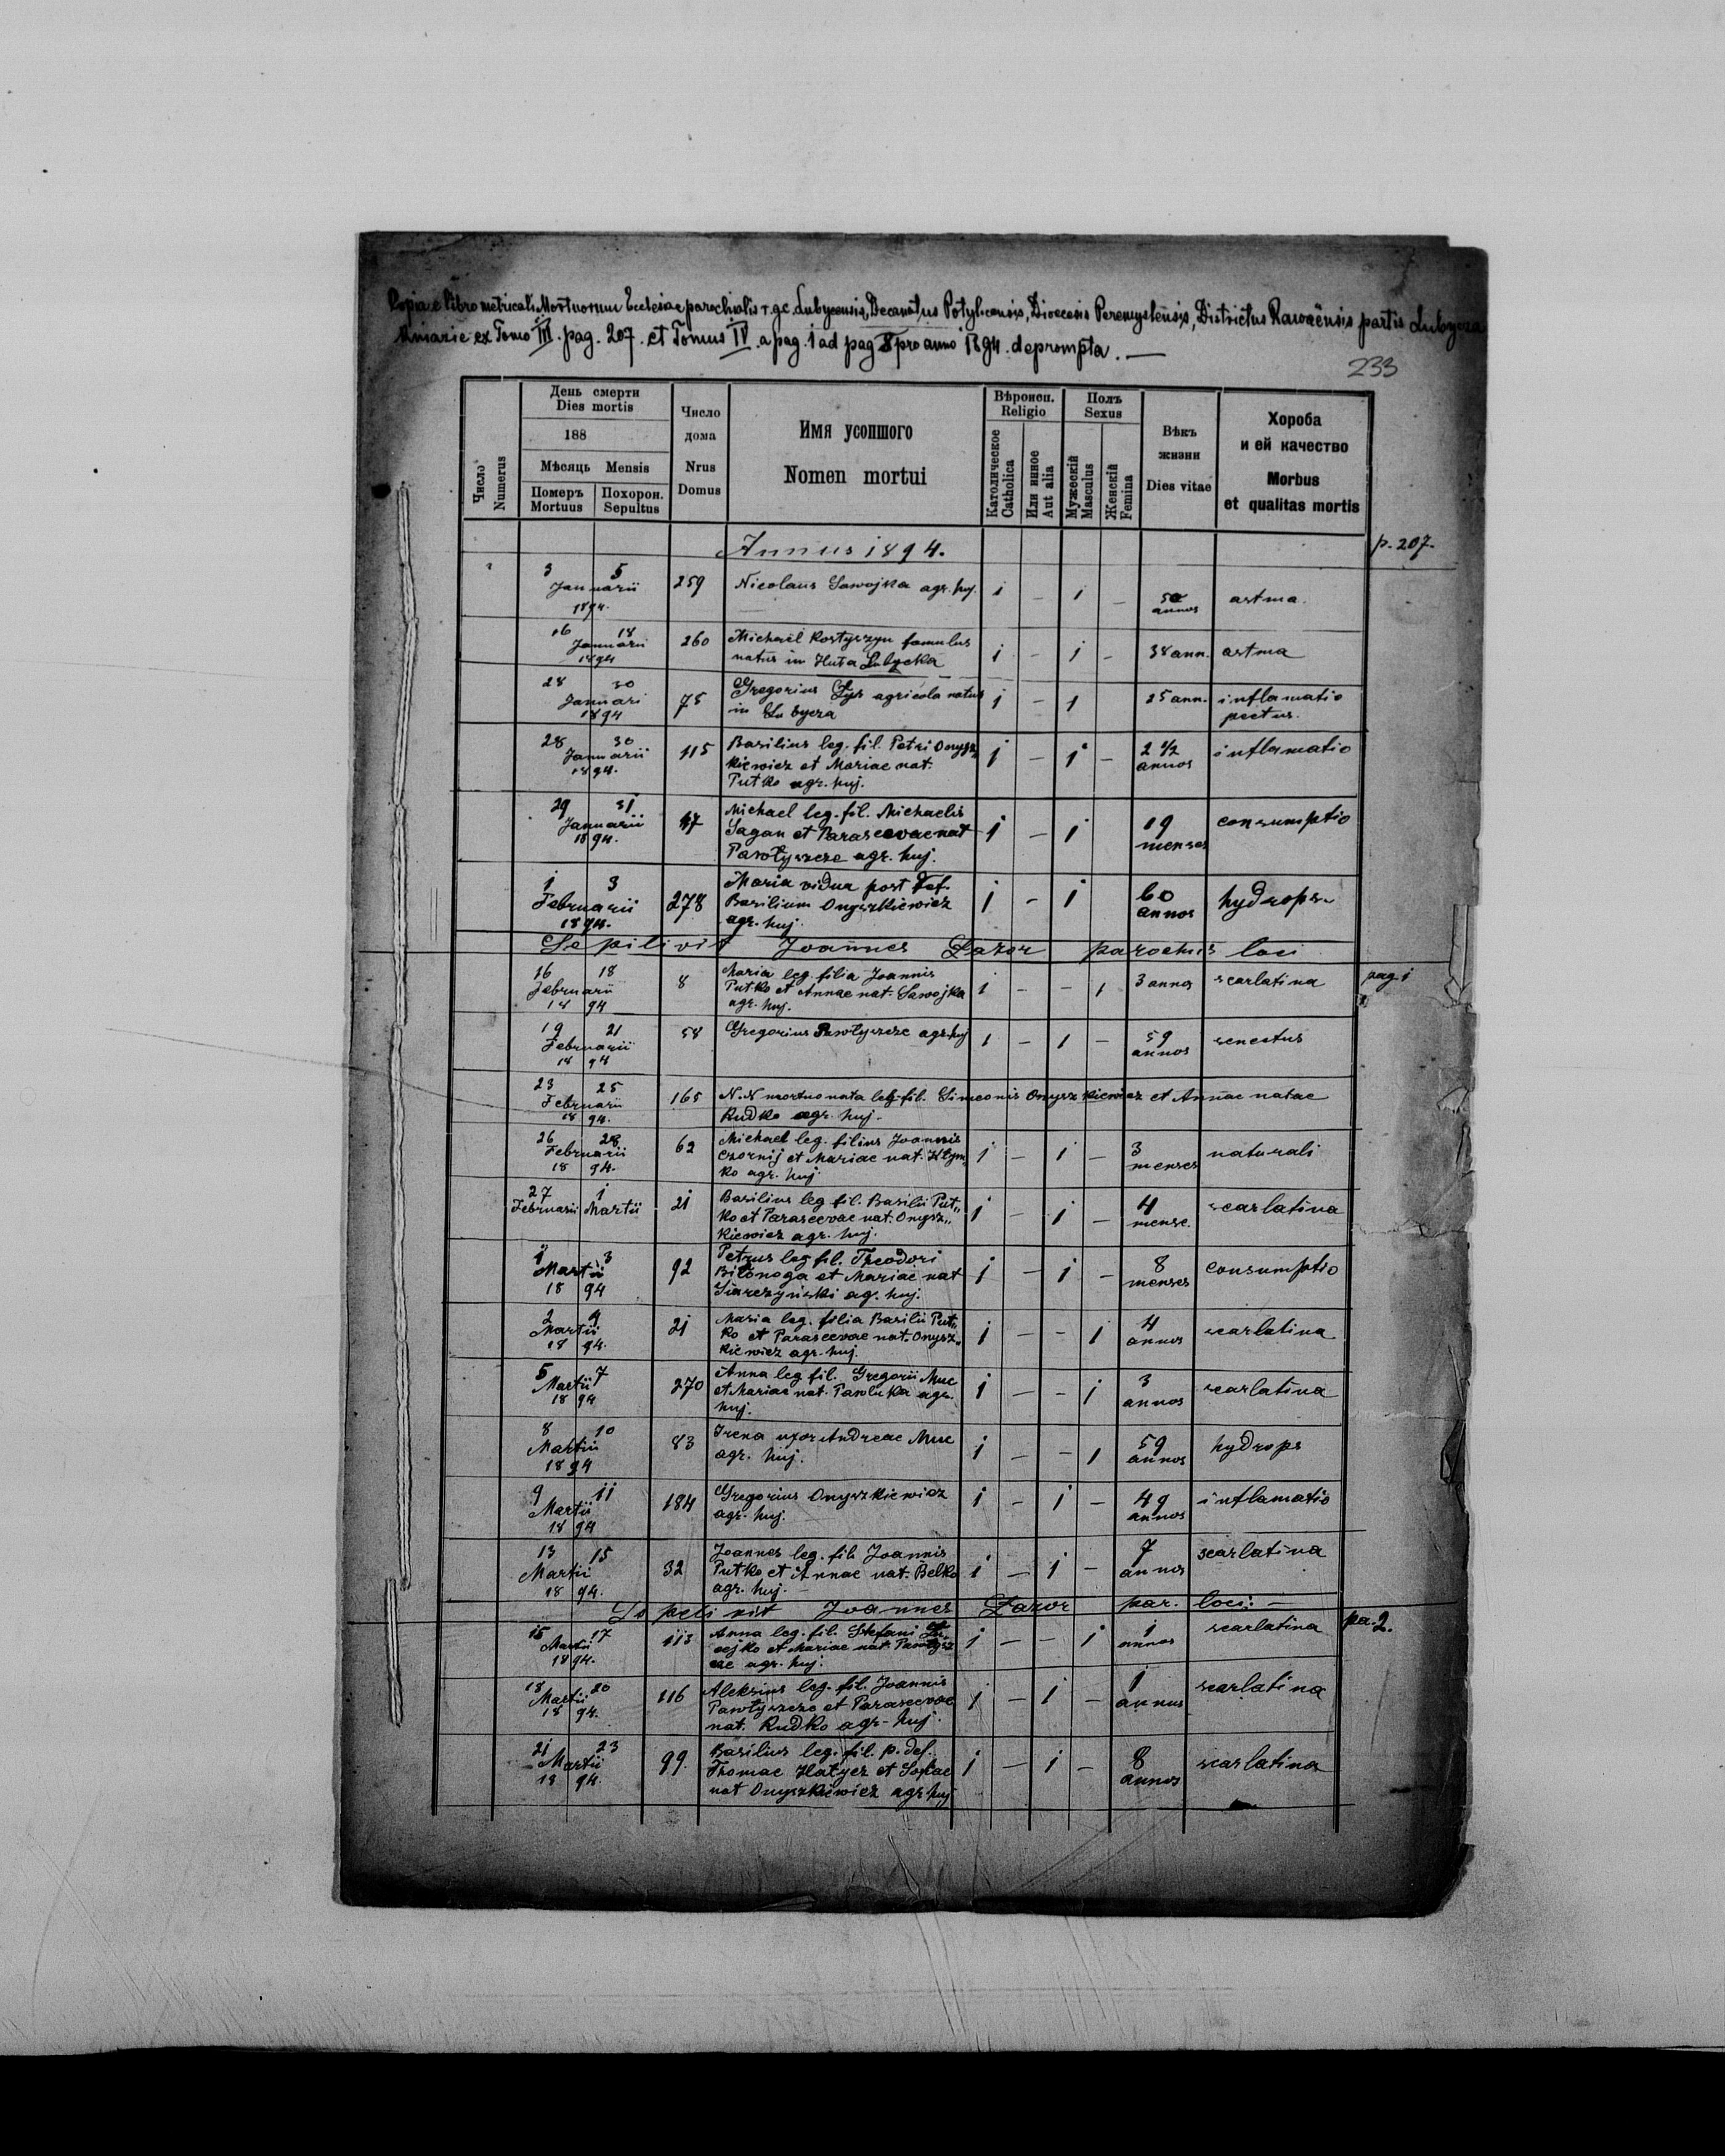 Copia e libro metricali Mortuorum Ecclesiae parochialis r.g.c. Lubycensis, Decanatus Potylicensis, Dioecesis Peremyslensis, Districtus Rawaënsis partis Lubycza
Kniazie ex Tomo III. pag. 207. et Tomus IV. a pag. 1 ad pag 8 pro anno 1894. deprompta. —
233
Число Numerus
День смерти
Dies mortis
188
Мѣсяць Mensis
Померъ Mortuus
Похорон. Sepultus
Число дома
Nrus Domus
Имя усопшого
Nomen mortui
Вѣроисп.
Religio
Католическое Catholica
Или инное Aut alia
Полъ
Sexus
Мужескій Masculus
Женскій Femina
Вѣкъ жизни
Dies vitae
Хороба
и ей качество
Morbus
et qualitas mortis
Annus 1894.
p. 207.
3 5 Januarii 1894. 259 Nicolaus Sawojka agr. huj. 1 — 1 — 50 annos astma.
16 18 Januarii 1894 260 Michaël Kostyszyn famulus
natus in Huta Lubycka 1 — 1 — 38 ann. astma
28 30 Januari 1894 75 Gregorius Lys agricola natus
in Lubycza 1 — 1 25 ann. inflamatio
pectus.
28 30 Januarii 1894. 115 Basilius leg. fil. Petri Onysz„
kiewicz et Mariae nat.
Putko agr. huj. 1 — 1 — 2 1/2 annos inflamatio
29 31 Januarii 1894. 17 Michael leg. fil. Michaelis
Sagan et Parascevae nat
Pawłyszcze agr. huj. 1 — 1 19 menses consumptio
1 3 Februarii 1894. 278 Maria vidua post def.
Basilium Onyszkiewicz
agr. huj. 1 — 1 60 annos hydrops
Sepilivit Joannes Lazor parochus loci
16 18 Februarii 18 94 8 Maria leg. filia Joannis
Putko et Annae nat. Sawojka
agr. huj. 1 — — 1 3 annos scarlatina pag. 1
19 21 Februarii 18 94 58 Gregorius Pawłyszcze agr. huj 1 — 1 — 59 annos senectus
23 25 Februarii 18 94. 165 N. N mortuo nata leg. fil. Simeonis Onyszkiewicz et Annae natae
Rudko agr. huj.
26 28 Februarii 18 94. 62 Michael leg. filius Joannis
Czornij et Mariae nat. Hłym„
ko agr. huj. 1 — 1 — 3 menses naturali
27 Februarii 1 Martii 21 Basilius leg fil. Basilii Put„
ko et Parascevae nat. Onysz„
kiewicz agr. huj. 1 — 1 — 4 mense. scarlatina
1 3 Martii 18 94 92 Petrus leg fil. Theodori
Biłonoga et Mariae nat
Siarczyński ag. huj. 1 — 1 — 8 menses consumptio
2 4 Martii 18 94. 21 Maria leg. filia Basilii Put„
ko et Parascevae nat. Onysz„
kiewicz agr. huj. 1 — — 1 4 annos scarlatina
5 7 Martii 18 94 270 Anna leg fil. Gregorii Muc
et Mariae nat. Pawluka agr.
huj. 1 — — 1 3 annos scarlatina
8 10 Martii 1894 83 Irena uxor Andreae Muc
agr. huj. 1 — — 1 59 annos hydrops
9 11 Martii 18 94 184 Gregorius Onyszkiewicz
agr. huj. 1 — 1 — 49 annos inflamatio
13 15 Martii 18 94. 32 Joannes leg. fil. Joannis
Putko et Annae nat. Belko
agr. huj. — 1 — 1 — 7 annos scarlatina
Sepelivit Joannes Lazor par. loci: —
pa. 2.
15 17 Martii 1894. 113 Anna leg. fil. Stefani
et Mariae nat. Pawłysz
cze agr. huj. 1 — — 1 1 annos scarlatina
18 20 Martii 18 94. 116 Aleksius leg. fil. Joannis
Pawłyszcze et Parascevae
nat. Rudko agr. huj. 1 — 1 — 1 annus scarlatina
21 23 Martii 18 94. 99. Basilius leg. fil. p. def.
Thomae Hatycz et Sofiae
nat Onyszkiewicz agr. huj 1 — 1 — 8 annos scarlatina